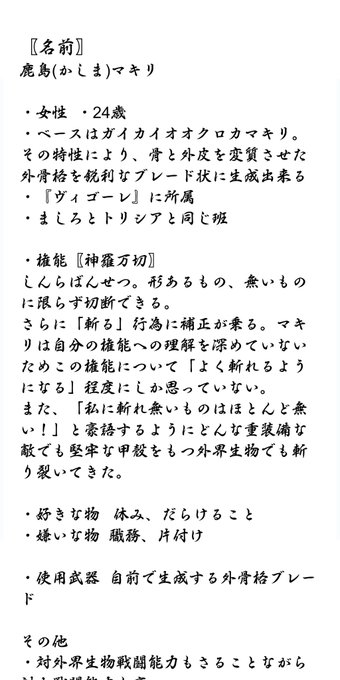 〖名前〗
鹿島(かしま)マキリ
・女性 ・24歳
・ベースはガイカイオオクロカマキリ。
その特性により、骨と外皮を変質させた
外骨格を鋭利なブレード状に生成出来る
・『ヴィゴーレ』に所属
・ましろとトリシアと同じ班
・権能〖神羅万切〗
しんらばんせつ。形あるもの、無いもの
に限らず切断できる。
さらに「斬る」行為に補正が乗る。マキ
リは自分の権能への理解を深めていない
ためこの権能について「よく斬れるよう
になる」程度にしか思っていない。
また、「私に斬れ無いものはほとんど無
い！」と豪語するようにどんな重装備な
敵でも堅牢な甲殻をもつ外界生物でも斬
り裂いてきた。
・好きな物 休み、だらけること
・嫌いな物 職務、片付け
・使用武器 自前で生成する外骨格ブレー
ド
その他
・対外界生物戦闘能力もさることながら